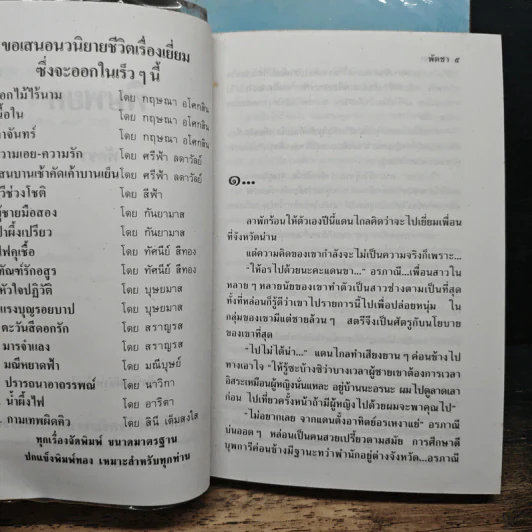 ขอเสนอนวนิยายชีวิตเรื่องเยี่ยม
ซึ่งจะออกในเร็ว ๆ นี้
อกไม้ไร้นาม โดย กฤษณา อโศกสิน
โดย กฤษณา อโศกสิน
าจันทร์ โดย กฤษณา อโศกสิน
วามเอย-ความรัก โดย ศรีฟ้า ลดาวัลย์
สนบานเช้าคัดเค้าบานเย็น โดย ศรีฟ้า ลดาวัลย์
วีช่วงโชติ โดย สีฟ้า
ผู้ชายมือสอง โดย กันยามาส
ปาผึ้งเปรี้ยว โดย กันยามาส
ไฟคุเชื้อ โดย ทัศนีย์ สีทอง
ทัณฑ์รักอสูร โดย ทัศนีย์ สีทอง
หัวใจปฏิวัติ โดย บุษยมาส
แรงบุญรอยบาป โดย บุษยมาส
ตะวันสีดอกรัก โดย สราญรส
มารจำแลง โดย สราญรส
มณีหยาดฟ้า โดย มณีบุษย์
ปรารถนาอาถรรพณ์ โดย นาวิกา
น้ำผึ้งไฟ โดย อาริตา
กามเทพผิดคิว โดย สินี เต็มสงสัย
ทุกเรื่องจัดพิมพ์ ขนาดมาตรฐาน
ปกแข็งพิมพ์ทอง เหมาะสำหรับทุกท่าน
พัดชา ๕
๑...
ลาพักร้อนให้ตัวเองปีนี้แดนไกลคิดว่าจะไปเยี่ยมเพื่อน
ที่จังหวัดน่าน
แต่ความคิดของเขากำลังจะไม่เป็นความจริงก็เพราะ...
"ให้อรไปด้วยนะคะแดนขา..." อรภาณี...เพื่อนสาวใน
หลาย ๆ หลายนัยของเขาทำตัวเป็นสาวช่างตามเป็นที่สุด
ทั้งที่หล่อนก็รู้ดีว่าเขาไปรายการนี้ไปเพื่อปล่อยหนุ่ม ใน
กลุ่มของเขามีแต่ชายล้วน ๆ สตรีจึงเป็นศัตรูกับนโยบาย
ของเขาที่สุด
"ไปไม่ได้น่า..." แดนไกลทำเสียงยาน ๆ ค่อนข้างไป
ทางเอาใจ "ให้รู้ซะบ้างซิว่าบางเวลาผู้ชายเขาต้องการเวลา
อิสระเหมือนผู้หญิงนั่นแหละ อยู่บ้านนะอรนะ ผมไปดูลาดเลา
ก่อน ไปเที่ยวครั้งหน้าถ้ามีผู้หญิงไปด้วยผมจะพาคุณไป"
"ไม่อยากเลย จากแดนตั้งอาทิตย์อรเหงาแย่" อรภาณี
บ่นออดๆ หล่อนเป็นคนสวยเปรี้ยวตามสมัย การศึกษาดี
บุพการีค่อนข้างมีฐานะทว่าพำนักอยู่ต่างจังหวัด...อรภาณี